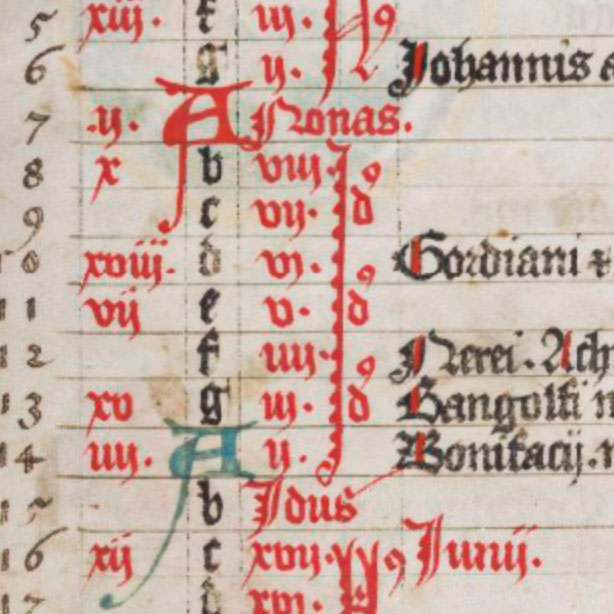 5 xiii. f iii. N9
6 g ij. Johannis
7 .ij. A Nonas.
8 x b viij. J9
9 c vij. d
10 xviij. d vi. 9 Gordiani
11 vij e v. d
12 f iiij. 9 Nerei. Ach
13 xv g iij. d Gangolfi
14 iiij. A ij. Bonifacij.
15 b Idus
16 xij c xvij. 9 Junij.
17 d xvi.